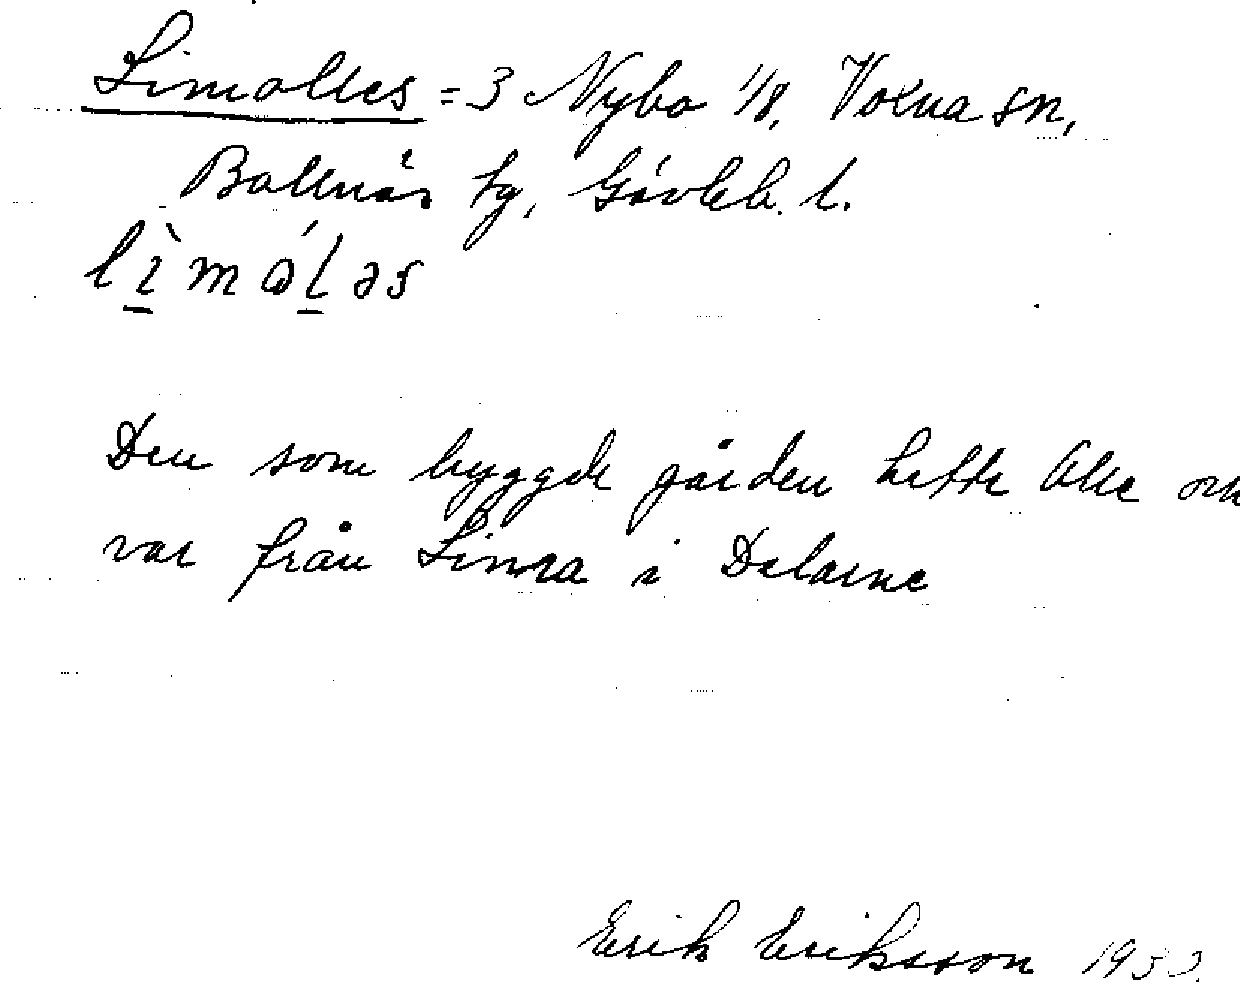 Limolles = 3 Nybo 1/8, Voxna sn,
Bollnäs tg, Gävleb. l.
Den som byggde gården hette Olle och
var från Lima i Dalarne
Erik Eriksson 1933.